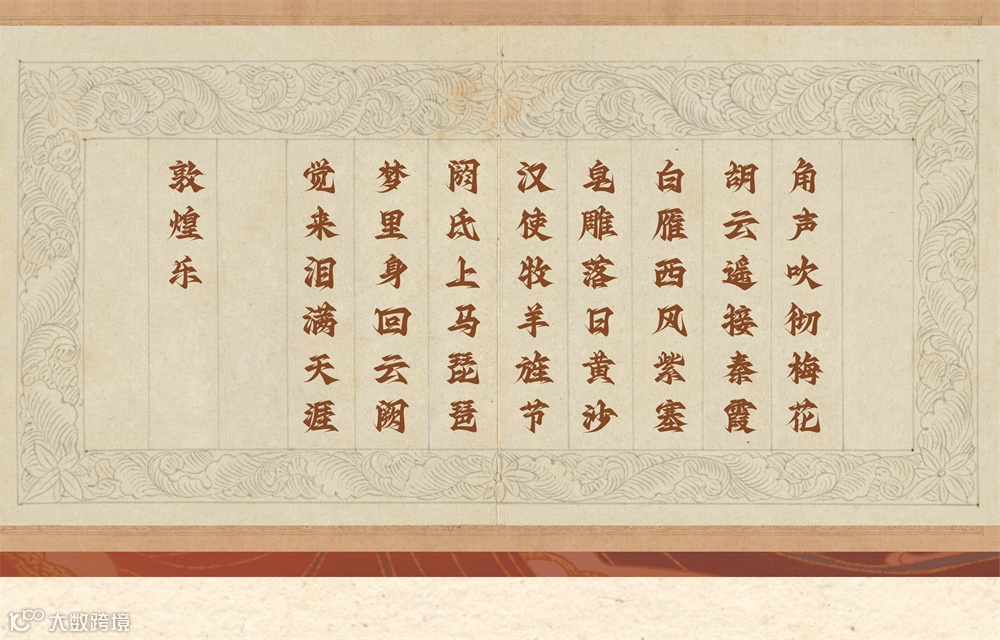 角声吹彻梅花
胡云遥接秦霞
白雁西风紫塞
皂雕落日黄沙
汉使牧羊旌节
阏氏上马琵琶
梦里身回云阙
觉来泪满天涯
敦煌乐
大数跨境